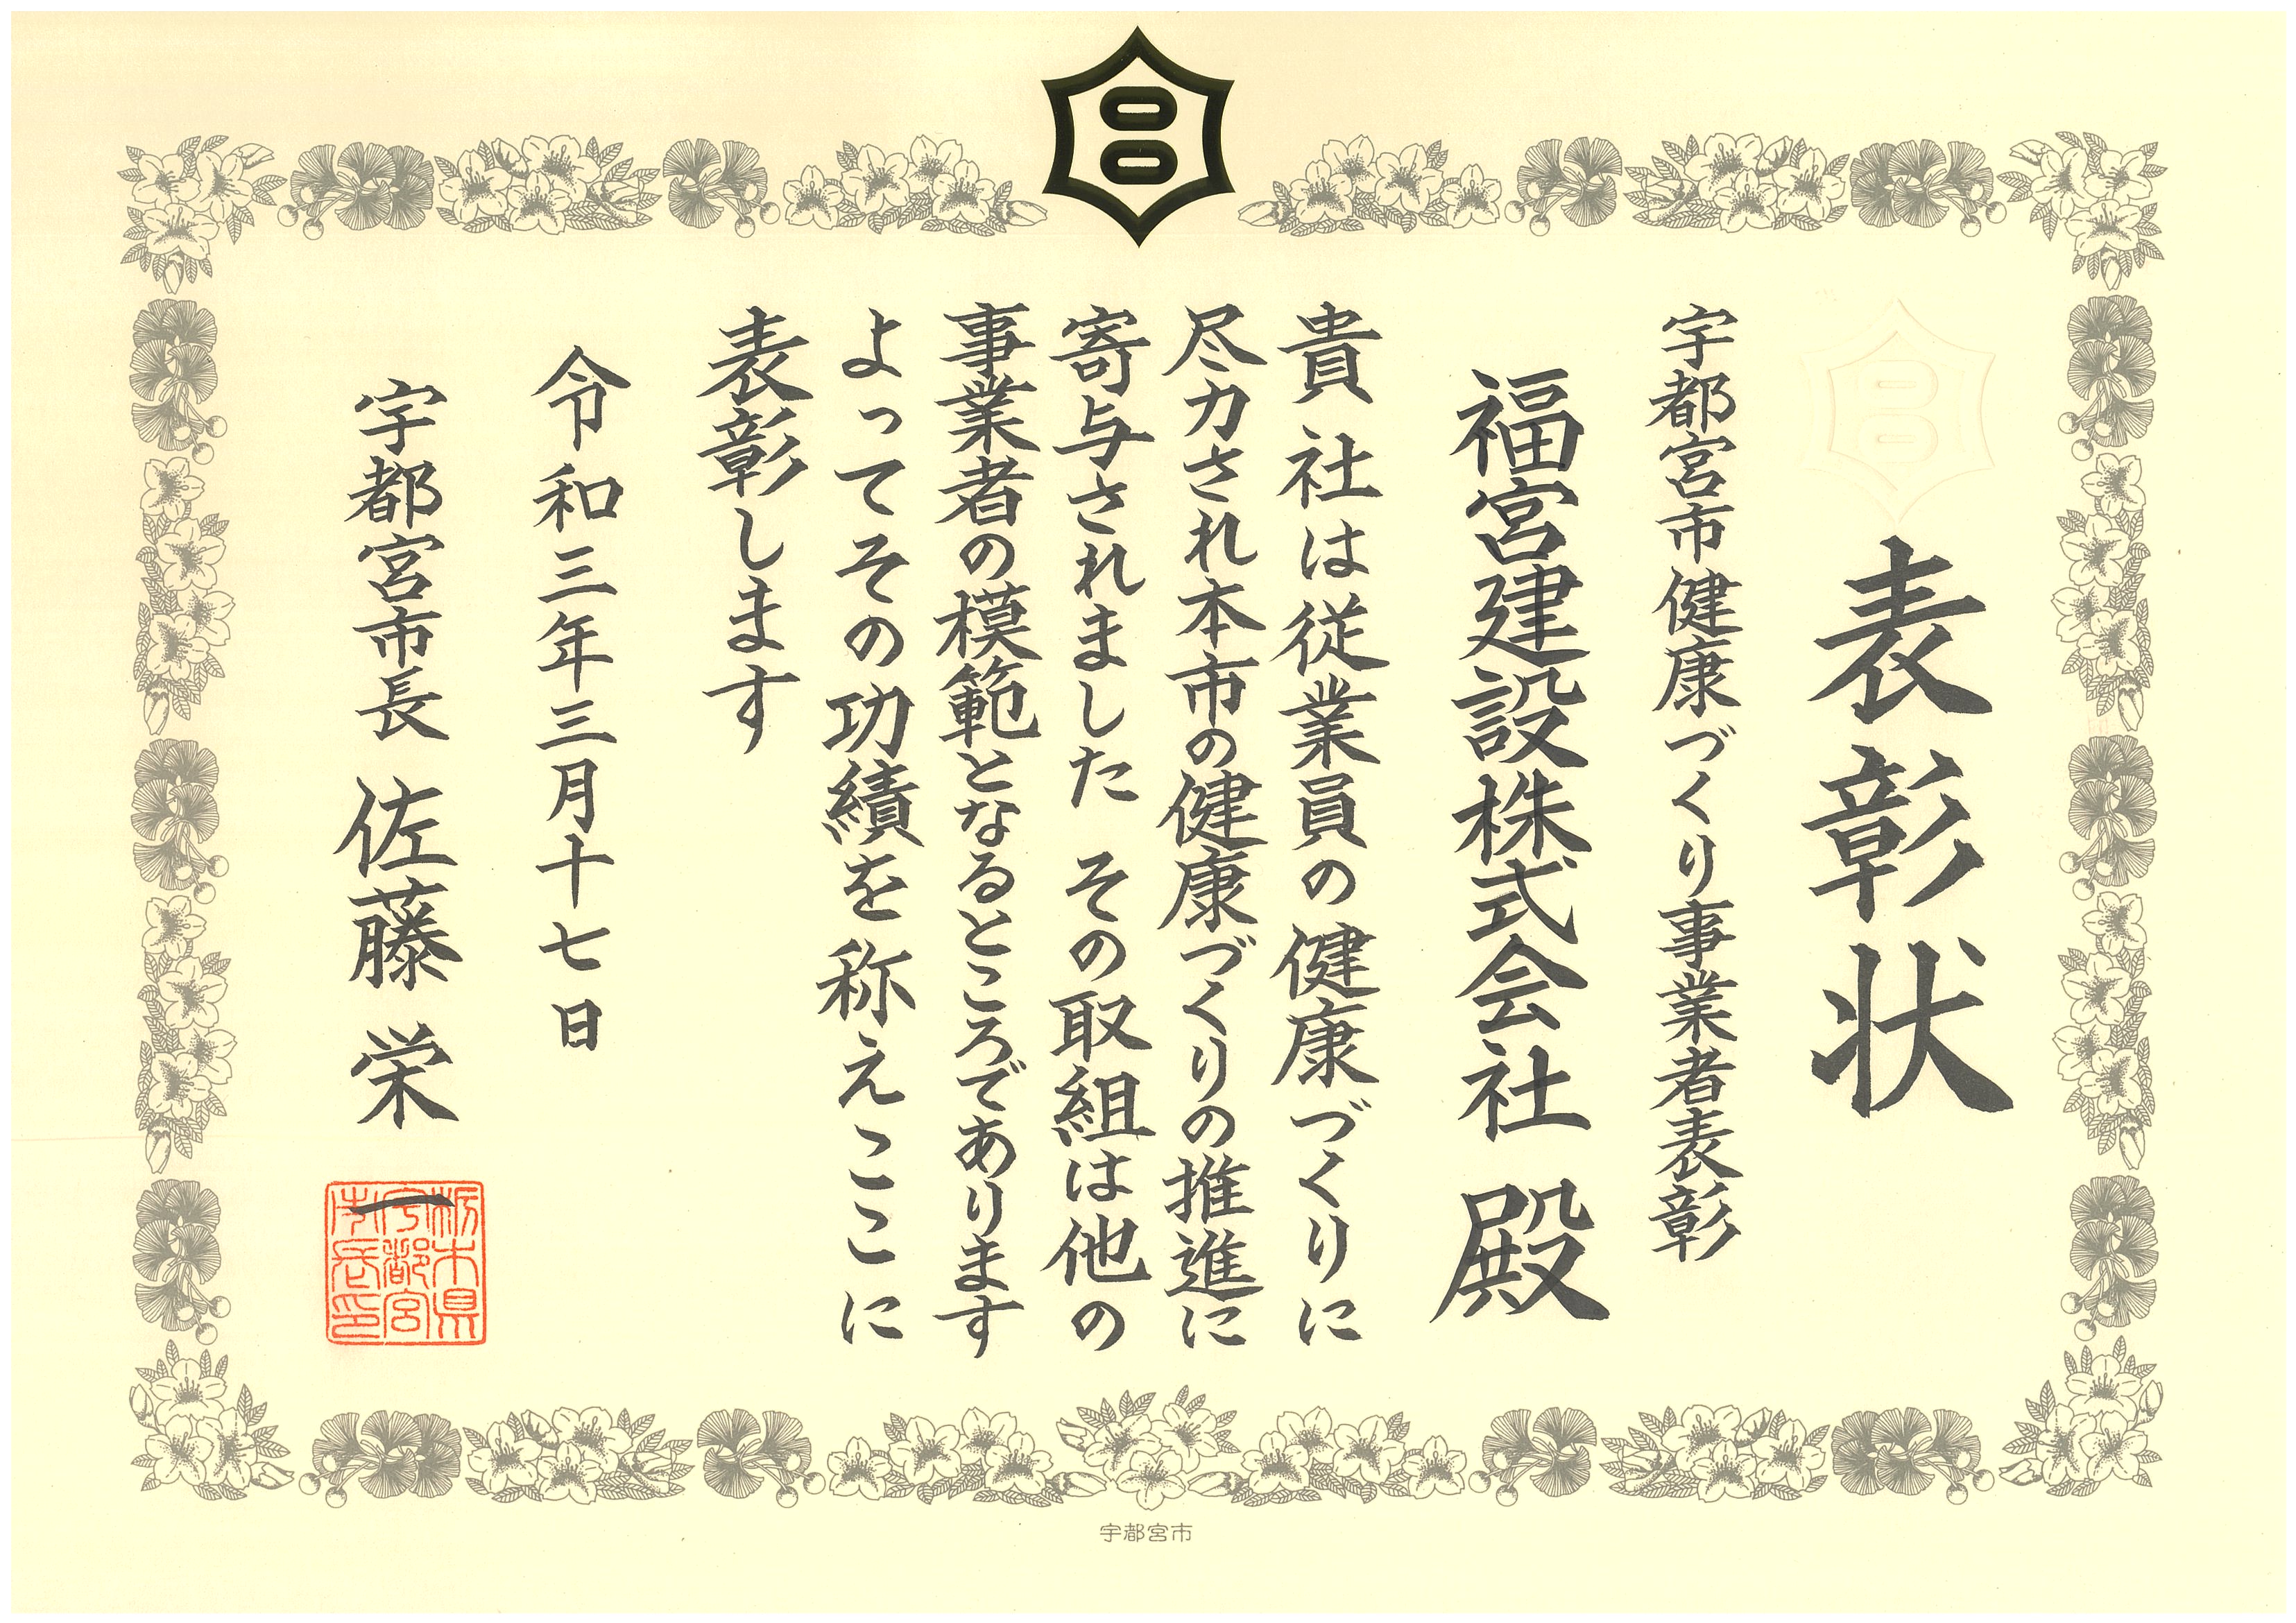 表彰状
宇都宮市健康づくり事業者表彰
福宮建設株式会社 殿
貴社は従業員の健康づくりに
尽力され本市の健康づくりの推進に
寄与されました その取組は他の
事業者の模範となるところであります
よってその功績を称えここに
表彰します
令和三年三月十七日
宇都宮市長 佐藤栄一
栃木県
宇都宮
市長印
宇都宮市